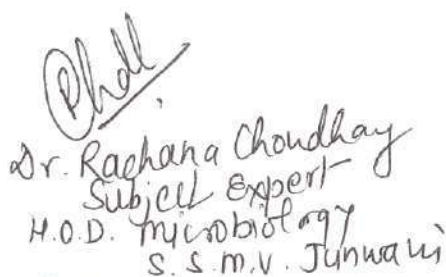 Dr. Rachana Choudhary
Subject Expert
H.O.D. Microbiology
S.S.M.V. Junwani